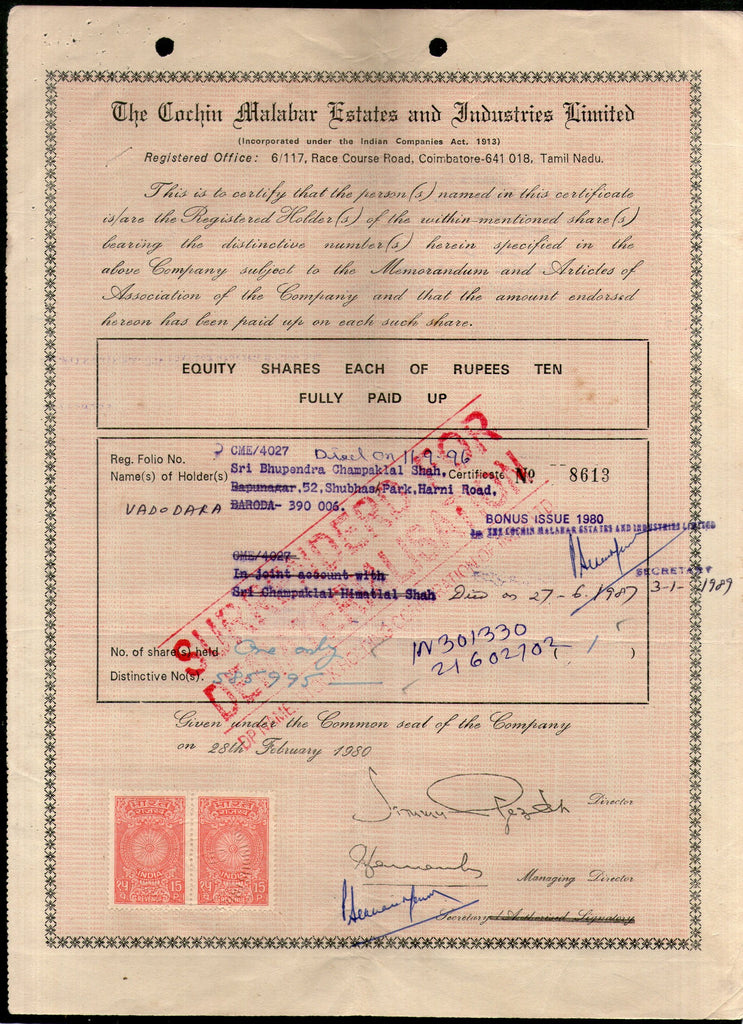 The Cochin Malabar Estates and Industries Limited
(Incorporated under the Indian Companies Act, 1913)
Registered Office: 6/117, Race Course Road, Coimbatore-641 018, Tamil Nadu.
This is to certify that the person(s) named in this certificate
is/are the Registered Holder(s) of the within-mentioned share(s)
bearing the distinctive number(s) herein specified in the
above Company subject to the Memorandum and Articles of
Association of the Company and that the amount endorsed
hereon has been paid up on each such share.
EQUITY SHARES EACH OF RUPEES TEN
FULLY PAID UP
Reg. Folio No. CME/4027 Died on 11-9-96
Name(s) of Holder(s) Sri Bhupendra Champaklal Shah, Certificate No 8613
Bapunagar, 52, Shubhas Park, Harni Road,
VADODARA BARODA- 390 006.
BONUS ISSUE 1980
THE COCHIN MALABAR ESTATES AND INDUSTRIES LIMITED
CME/4027
In joint account with
SECRETARY
Sri Champaklal Himatlal Shah Died on 27-6-1987 3-1-1989
SURRENDERD FOR
DEMATERIALISATION
DP NAME
No. of share(s) held One only IN301330 ( 1 )
Distinctive No(s). 585995 21602702
Given under the Common seal of the Company
on 28th February 1980
Director
Managing Director
Secretary / Authorised Signatory
भारत
INDIA
१५ 15
REVENUE
P.
भारत
INDIA
१५ 15
REVENUE
P.